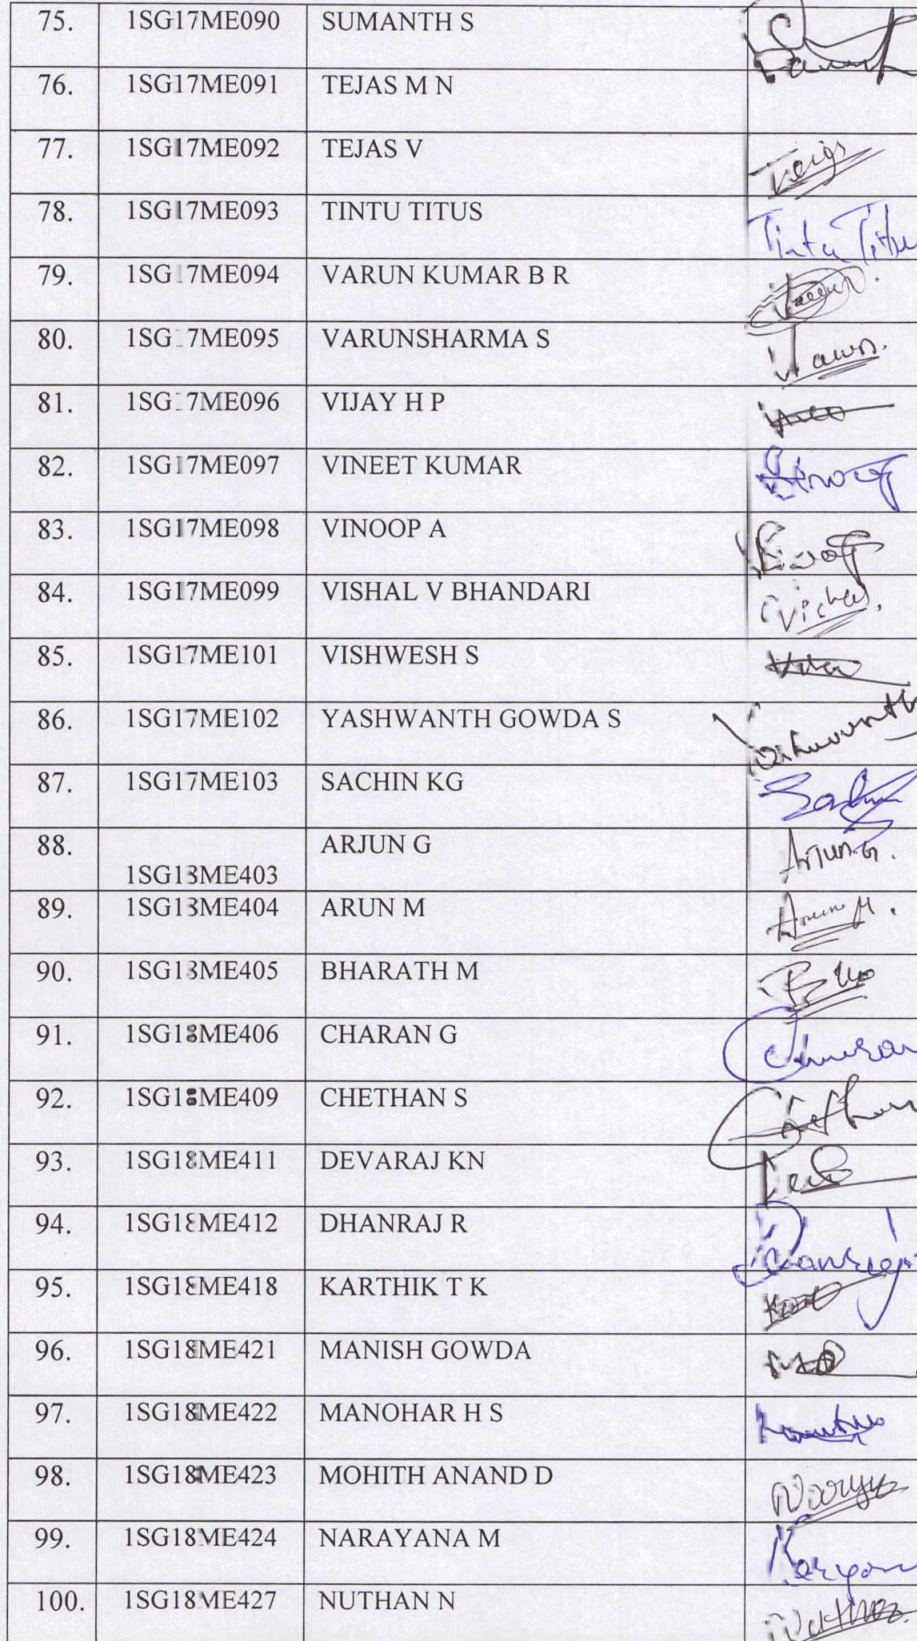 75. 1SG17ME090 SUMANTH S
76. 1SG17ME091 TEJAS M N
77. 1SG17ME092 TEJAS V
78. 1SG17ME093 TINTU TITUS Tintu Titus
79. 1SG17ME094 VARUN KUMAR B R
80. 1SG17ME095 VARUNSHARMA S
81. 1SG17ME096 VIJAY H P
82. 1SG17ME097 VINEET KUMAR
83. 1SG17ME098 VINOOP A
84. 1SG17ME099 VISHAL V BHANDARI Vishal.
85. 1SG17ME101 VISHWESH S
86. 1SG17ME102 YASHWANTH GOWDA S Yashwanth
87. 1SG17ME103 SACHIN KG
88. 1SG18ME403 ARJUN G Arjun.G.
89. 1SG18ME404 ARUN M Arun M.
90. 1SG18ME405 BHARATH M
91. 1SG18ME406 CHARAN G
92. 1SG18ME409 CHETHAN S Chethan
93. 1SG18ME411 DEVARAJ KN
94. 1SG18ME412 DHANRAJ R
95. 1SG18ME418 KARTHIK T K
96. 1SG18ME421 MANISH GOWDA
97. 1SG18ME422 MANOHAR H S
98. 1SG18ME423 MOHITH ANAND D
99. 1SG18ME424 NARAYANA M
100. 1SG18ME427 NUTHAN N